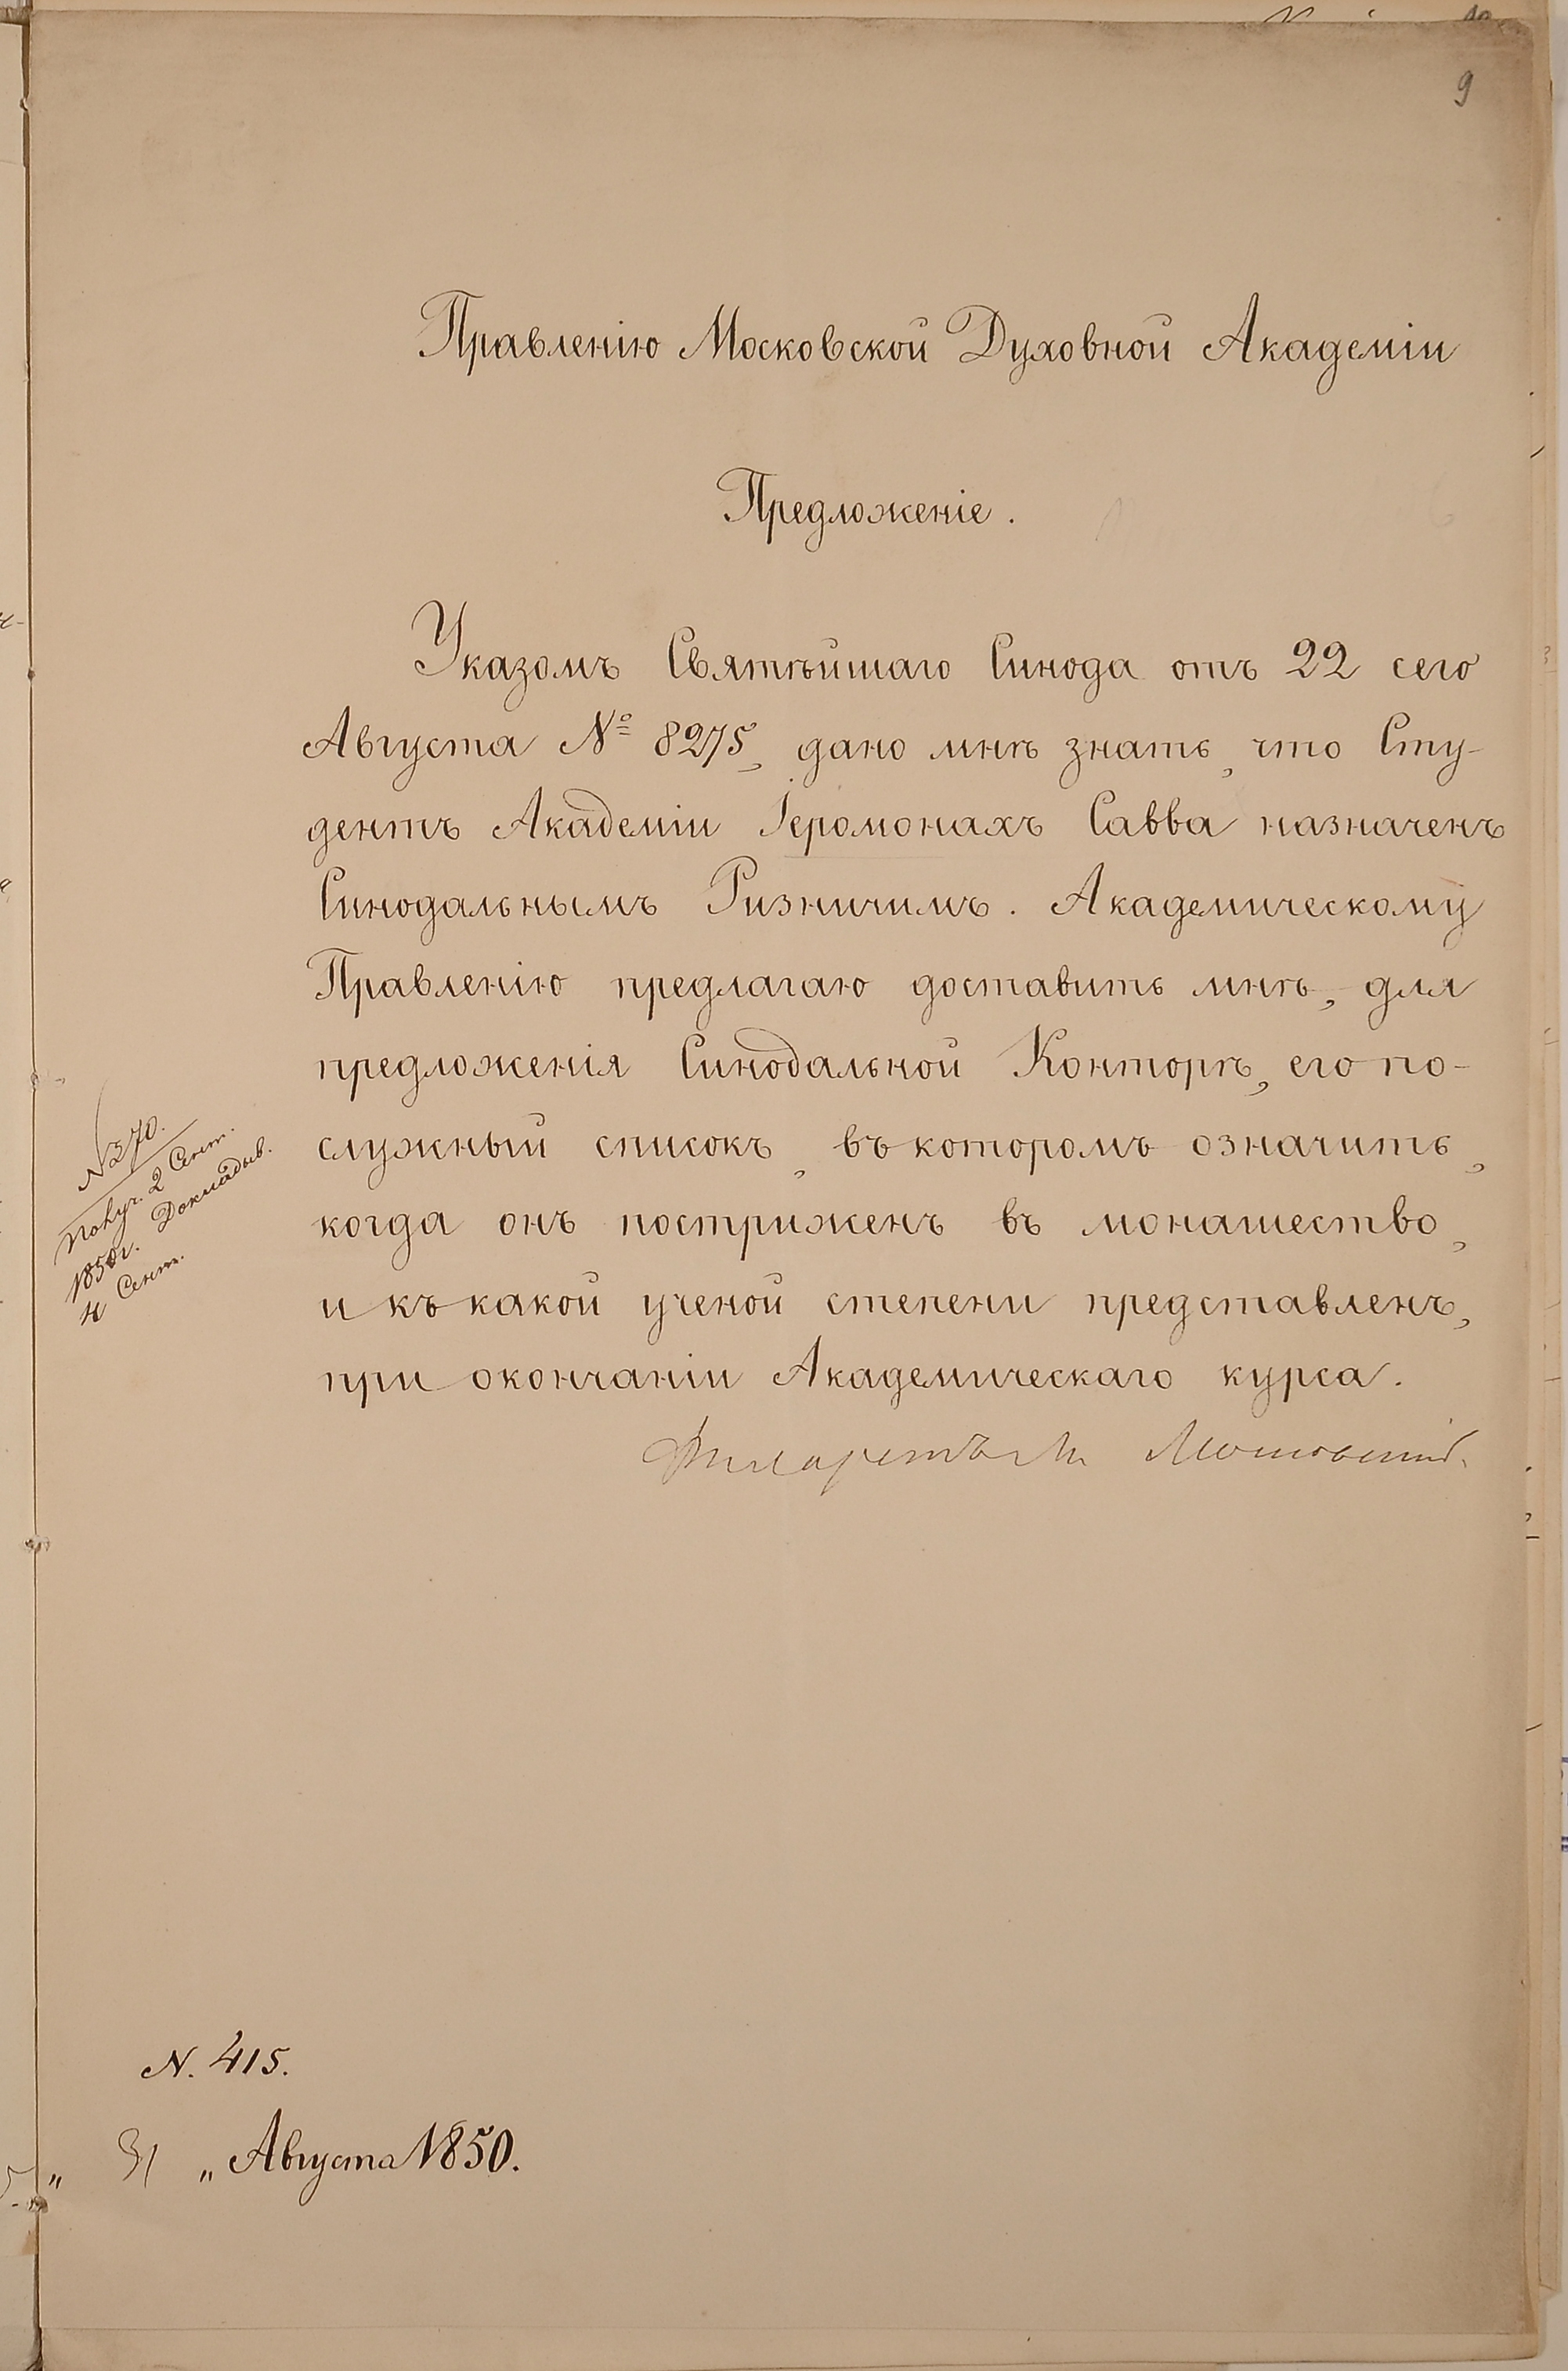 9
Правленію Московской Духовной Академіи
Предложеніе.
Указомъ Святѣйшаго Синода отъ 22 сего
Августа № 8275, дано мнѣ знать, что Сту-
дентъ Академіи Іеромонахъ Савва назначенъ
Синодальнымъ Ризничимъ. Академическому
Правленію предлагаю доставить мнѣ, для
предложенія Синодальной Конторѣ, его по-
служный списокъ, въ которомъ означить,
когда онъ постриженъ въ монашество,
и къ какой ученой степени представленъ,
при окончаніи Академическаго курса.
Филаретъ М. Московскій.
N 370.
Получ. 2 Сент.
1850 г. Докладыв.
4 Сент.
N. 415.
„ 31 „ Августа 1850.